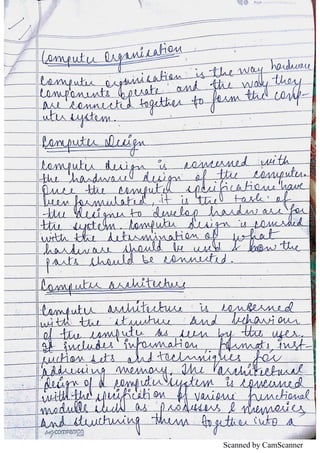 Computer Organisation
Computer organisation is the way hardware
components operate and the way they
are connected together to form the comp-
uter system.
Computer Design
Computer design is concerned with
the hardware design of the computer.
Once the computer specifications have
been formulated, it is the task of
the designer to develop hardware for
the system. Computer design is concerned
with the determination of what
hardware should be used & how the
parts should be connected.
Computer architecture
Computer architecture is concerned
with the structure and behaviour
of the computer as seen by the user.
It includes information, formats, inst-
ruction sets and techniques for
addressing memory. The architectural
design of a computer system is concerned
with the specification of various functional
modules such as processors & memories
and structuring them together into a
Scanned by CamScanner